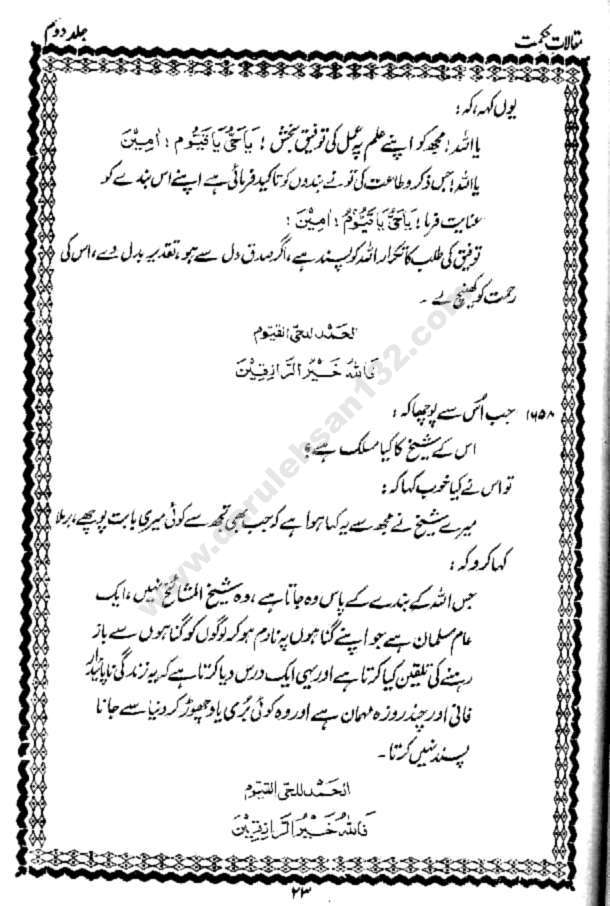 مقالات حکمت
جلد دوئم
یوں کہہ، کہ:
یا اللہ! مجھ کو اپنے علم پہ عمل کی توفیق بخش! یَاحَیُّ یَا قَیُّوم! اٰمِیْنَ
یا اللہ! جس ذکر و طاعت کی تو نے بندوں کو تاکید فرمائی ہے اپنے اس بندے کو
عنایت فرما! یَاحَیُّ یَا قَیُّوْمُ! اٰمِیْنَ!
توفیق کی طلب کا تکرار اللہ کو پسند ہے، اگر صدق دل سے ہو، تقدیر بدل دے، اس کی
رحمت کو کھینچ لے۔
الحَمْد للحیّ القیّوم
فَاللہُ خَیْرُ الرَّازِقِیْنَ
۱۶۵۸ جب اُس سے پوچھا کہ:
اس کے شیخ کا کیا مسلک ہے؟
تو اس نے کیا خوب کہا کہ:
میرے شیخ نے مجھ سے یہ کہا ہوا ہے کہ جب بھی تجھ سے کوئی میری بابت پوچھے، برملا
کہا کرو کہ:
جس اللہ کے بندے کے پاس وہ جاتا ہے، وہ شیخ المشائخ نہیں، ایک
عام مسلمان ہے جو اپنے گناہوں پہ نادم ہو کر لوگوں کو گناہوں سے باز
رہنے کی تلقین کیا کرتا ہے اور یہی ایک درس دیا کرتا ہے کہ یہ زندگی ناپائیدار
فانی اور چند روزہ مہمان ہے اور وہ کوئی بُری یاد چھوڑ کر دنیا سے جانا
پسند نہیں کرتا۔
الحَمْد للحیّ القیّوم
فَاللہُ خَیْرُ الرَّازِقِیْنَ
۲۳
www.darulehsan132.com